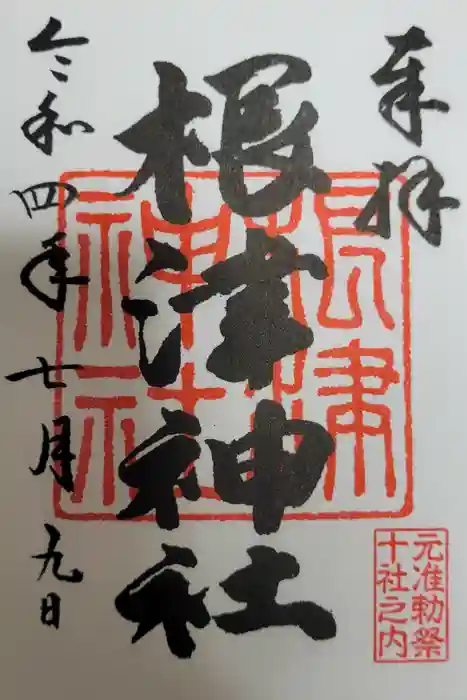 奉拝
根津神社
根津神社
元准勅祭
十社之内
令和四年七月九日